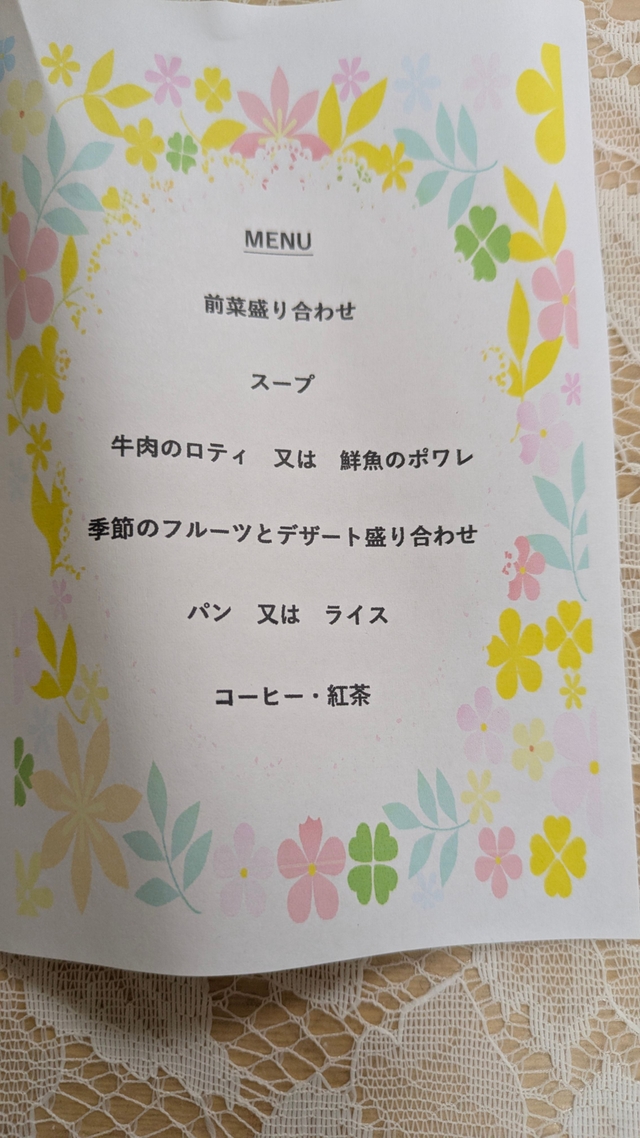 MENU
前菜盛り合わせ
スープ
牛肉のロティ　又は　鮮魚のポワレ
季節のフルーツとデザート盛り合わせ
パン　又は　ライス
コーヒー・紅茶